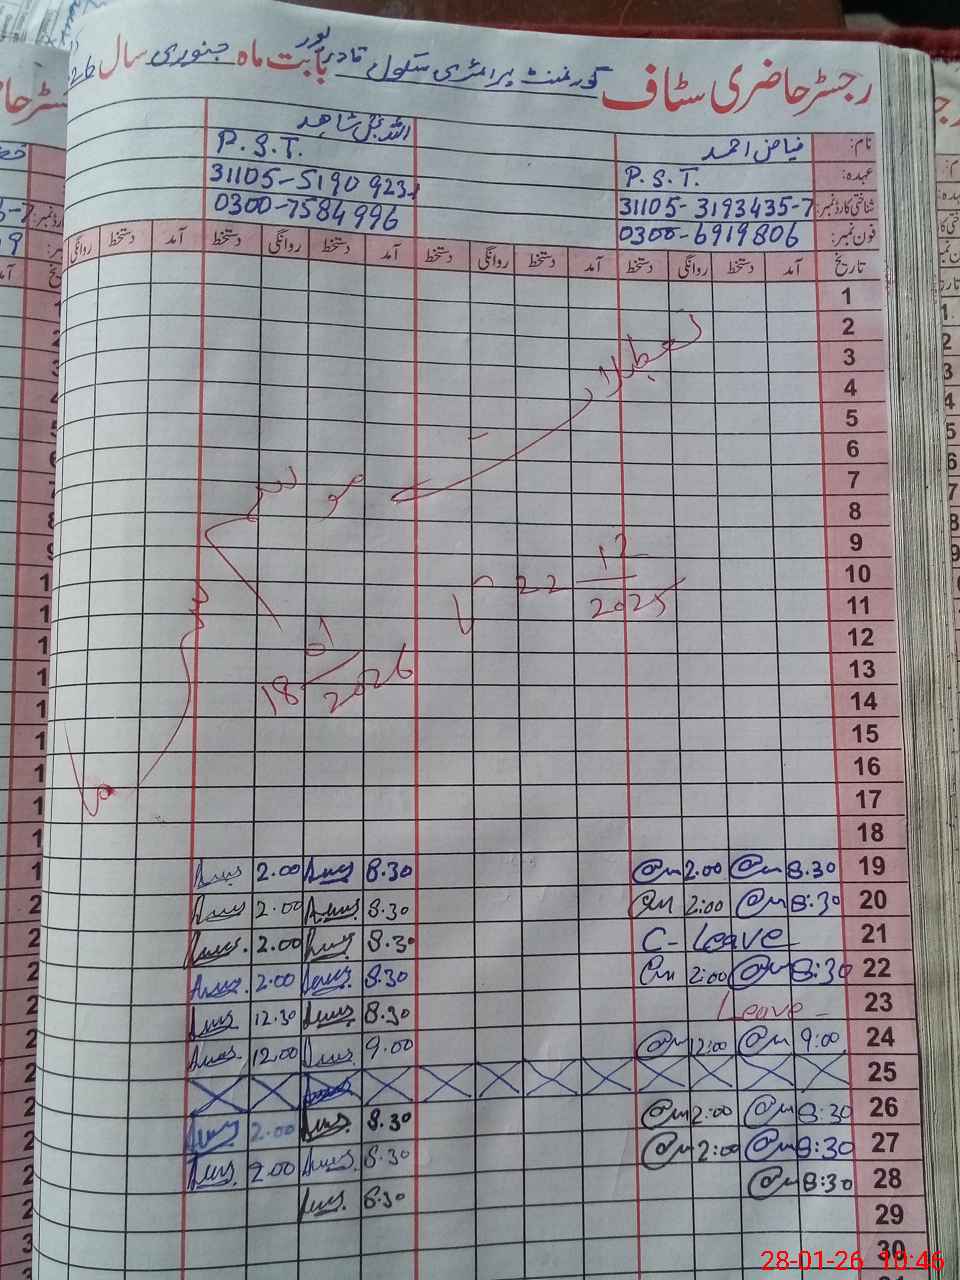 رجسٹر حاضری سٹاف گورنمنٹ پرائمری سکول قادر پور بابت ماہ جنوری سال 26
نام: فیاض احمد
عہدہ: P.S.T. P.S.T.
شناختی کارڈ نمبر: 31105-3193435-7 31105-5190923-1
فون نمبر: 0300-6919806 0300-7584996
تاریخ آمد دستخط روانگی دستخط آمد دستخط روانگی دستخط آمد دستخط روانگی دستخط آمد دستخط روانگی
1
2
3
4
5
6
7
8
9
10
11
12
13
14
15
16
17
18
تعطیلات موسم سرما
22 12/2025
18 01/2026
19 8.30 2.00 8.30 2.00
20 8:30 2:00 8.30 2.00
21 C-Leave 8.30 2.00
22 8:30 2:00 8.30 2.00
23 Leave 8.30 12.30
24 9:00 12:00 9.00 12.00
25
26 8:30 2:00 8.30 2.00
27 8:30 2:00 8.30 2.00
28 8:30 8.30
29
30
28-01-26 10:46